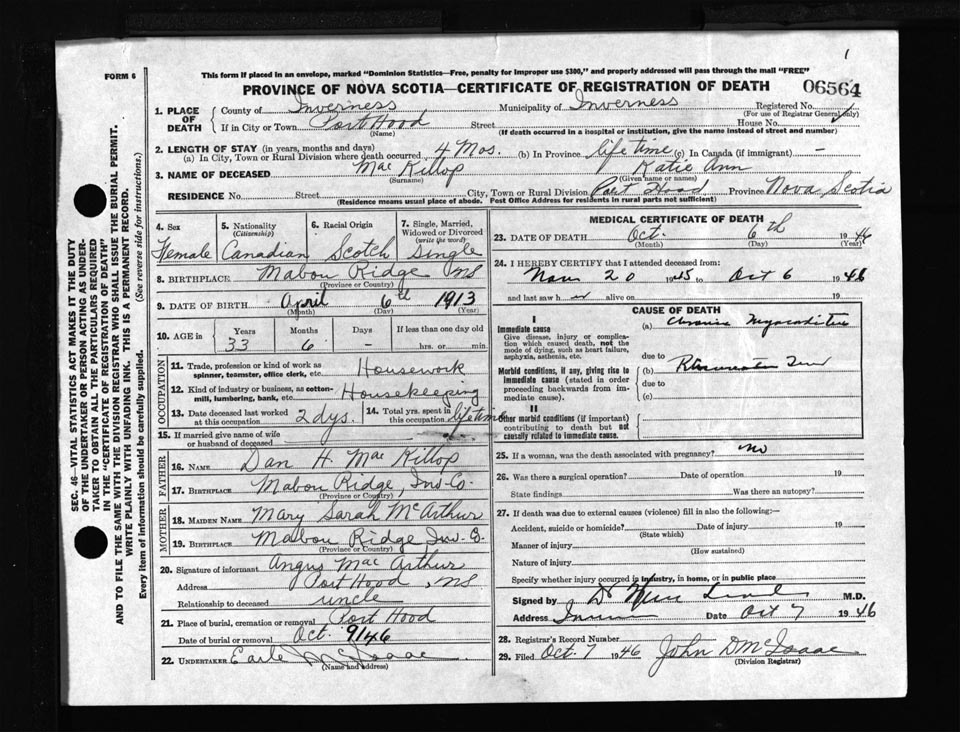 1
FORM 6
This form if placed in an envelope, marked "Dominion Statistics—Free, penalty for improper use $300," and properly addressed will pass through the mail "FREE"
PROVINCE OF NOVA SCOTIA—CERTIFICATE OF REGISTRATION OF DEATH
06564
1. PLACE OF DEATH
County of Inverness Municipality of Inverness Registered No.
(For use of Registrar General only)
If in City or Town Port Hood Street House No.
(Name) (If death occurred in a hospital or institution, give the name instead of street and number)
2. LENGTH OF STAY (in years, months and days)
(a) In City, Town or Rural Division where death occurred 4 Mos. (b) In Province life time (c) In Canada (if immigrant) —
3. NAME OF DECEASED Mac Killop Katie Ann
(Surname) (Given name or names)
RESIDENCE No. Street City, Town or Rural Division Port Hood Province Nova Scotia
(Residence means usual place of abode. Post Office Address for residents in rural parts not sufficient)
4. Sex
Female
5. Nationality
(Citizenship)
Canadian
6. Racial Origin
Scotch
7. Single, Married, Widowed or Divorced
(write the word)
Single
8. BIRTHPLACE Mabou Ridge NS
(Province or Country)
9. DATE OF BIRTH April 6th 1913
(Month) (Day) (Year)
10. AGE in Years Months Days If less than one day old
33 6 — hrs. or min.
OCCUPATION
11. Trade, profession or kind of work as spinner, teamster, office clerk, etc. Housework
12. Kind of industry or business, as cotton-mill, lumbering, bank, etc. Housekeeping
13. Date deceased last worked at this occupation 2 dys.
14. Total yrs. spent in this occupation lifetime
15. If married give name of wife or husband of deceased
FATHER
16. NAME Dan H. Mac Killop
17. BIRTHPLACE Mabou Ridge, Inv. Co.
(Province or Country)
MOTHER
18. MAIDEN NAME Mary Sarah McArthur
19. BIRTHPLACE Mabou Ridge Inv. Co.
(Province or Country)
20. Signature of informant Angus Mac Arthur
Address Port Hood, NS
Relationship to deceased uncle
21. Place of burial, cremation or removal Port Hood
Date of burial or removal Oct. 9/46
22. UNDERTAKER Earle McIsaac
(Name and address)
MEDICAL CERTIFICATE OF DEATH
23. DATE OF DEATH Oct. 6th 1946
(Month) (Day) (Year)
24. I HEREBY CERTIFY that I attended deceased from:
Nov 20 1945 to Oct 6 1946
and last saw h er alive on 19
CAUSE OF DEATH
I
Immediate cause
Give disease, injury or complication which caused death, not the mode of dying, such as heart failure, asphyxia, asthenia, etc.
(a) Chronic Myocarditis
due to
Morbid conditions, if any, giving rise to immediate cause (stated in order proceeding backwards from immediate cause).
(b)
due to
(c)
II
Other morbid conditions (if important) contributing to death but not causally related to immediate cause.
25. If a woman, was the death associated with pregnancy? no
26. Was there a surgical operation? Date of operation 19
State findings Was there an autopsy?
27. If death was due to external causes (violence) fill in also the following:—
Accident, suicide or homicide? Date of injury 19
(State which)
Manner of injury
(How sustained)
Nature of injury
Specify whether injury occurred in industry, in home, or in public place
Signed by Dr M.D.
Address Date Oct 7 1946
28. Registrar's Record Number
29. Filed Oct. 7 1946 John D McIsaac
(Division Registrar)
SEC. 46—VITAL STATISTICS ACT MAKES IT THE DUTY
OF THE UNDERTAKER OR PERSON ACTING AS UNDER-
TAKER TO OBTAIN ALL THE PARTICULARS REQUIRED
IN THE "CERTIFICATE OF REGISTRATION OF DEATH"
AND TO FILE THE SAME WITH THE DIVISION REGISTRAR WHO SHALL ISSUE THE BURIAL PERMIT.
WRITE PLAINLY WITH UNFADING INK. THIS IS A PERMANENT RECORD.
Every item of information should be carefully supplied. (See reverse side for instructions.)